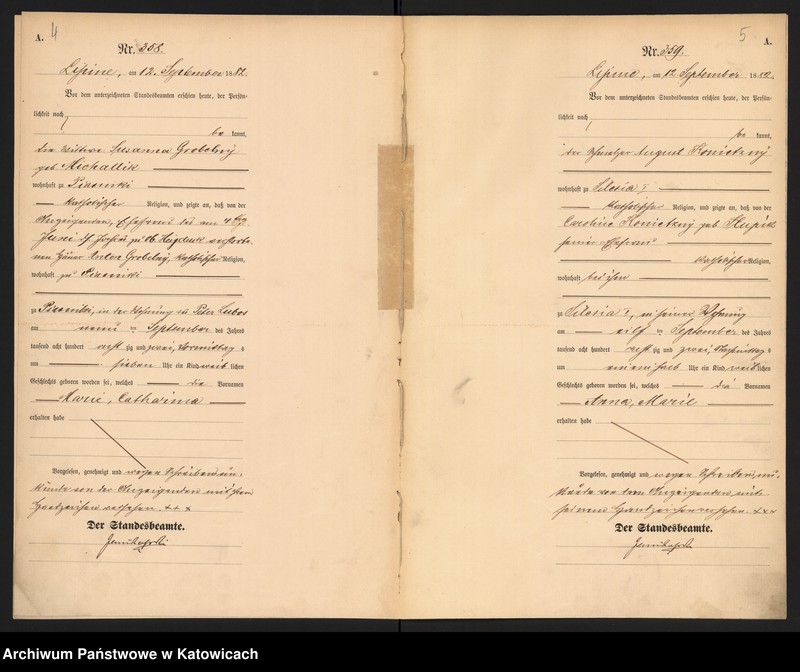 4
A.
Nr. 358.
Lipine, am 12. September 1882.
Vor dem unterzeichneten Standesbeamten erschien heute, der Persön-
lichkeit nach
be kannt,
die Wittwe Susanna Grobelny
geb Michallik
wohnhaft zu Piasniki
katholischer Religion, und zeigte an, daß von der
Anzeigenden, Ehefrau des am 4
Juni zu Ob Heiduk verstorbe-
nen Anton Grobelny, katholischer Religion,
wohnhaft zu Piasniki
zu Piasniki, in der Wohnung des Peter Lubos
am neun ten September des Jahres
tausend acht hundert acht zig und zwei, Vormittag s
um sieben Uhr ein Kind weib lichen
Geschlechts geboren worden sei, welches die Vornamen
Marie, Catharina
erhalten habe
Vorgelesen, genehmigt und wegen Schreibensun-
kunde von der Anzeigenden mit ihren
Handzeichen versehen +++
Der Standesbeamte.
5
A.
Nr. 359.
Lipine, am 12 September 1882.
Vor dem unterzeichneten Standesbeamten erschien heute, der Persön-
lichkeit nach
be kannt,
der August Konietzny
wohnhaft zu Silesia I
katholischer Religion, und zeigte an, daß von der
Caroline Konietzny geb
seiner Ehefrau
katholischer Religion,
wohnhaft bei ihm
zu Silesia I, in seiner Wohnung
am eilf ten September des Jahres
tausend acht hundert acht zig und zwei, Nachmittag s
um Uhr ein Kind weib lichen
Geschlechts geboren worden sei, welches die Vornamen
Anna, Marie
erhalten habe
Vorgelesen, genehmigt und wegen Schreibensun-
kunde von dem Anzeigenden mit
seinem Handzeichen versehen +++
Der Standesbeamte.
Archiwum Państwowe w Katowicach